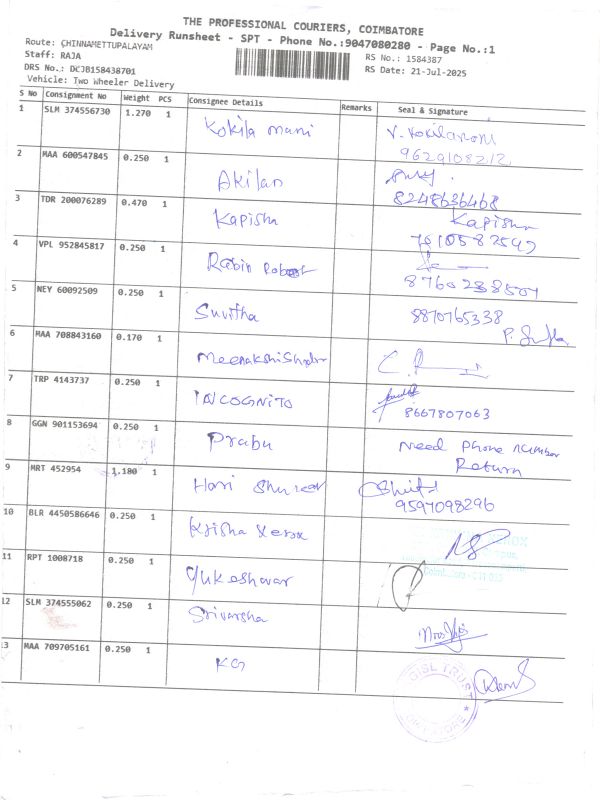 THE PROFESSIONAL COURIERS, COIMBATORE
Delivery Runsheet - SPT - Phone No.:9047080280 - Page No.:1
Route: CHINNAMETTUPALAYAM
RS No.: 1584387
Staff: RAJA
RS Date: 21-Jul-2025
DRS No.: DCJB158438701
Vehicle: Two Wheeler Delivery
S No Consignment No Weight PCS Consignee Details Remarks Seal & Signature
1 SLM 374556730 1.270 1 Kokila mani
9629108212
2 MAA 600547845 0.250 1 Akilan
8248636468
3 TDR 200076289 0.470 1 Kapisha Kapisha
7010582549
4 VPL 952845817 0.250 1 Robin Robert
8760238507
5 NEY 60092509 0.250 1 Suvitha 8870765338
6 MAA 708843160 0.170 1
7 TRP 4143737 0.250 1 INCOGNITO
8667807063
8 GGN 901153694 0.250 1 Prabu Need Phone number
Return
9 MRT 452954 1.180 1 Hari
9597098296
10 BLR 4450586646 0.250 1 Krisha Xerox
11 RPT 1008718 0.250 1 Yukeshwar
12 SLM 374555062 0.250 1 Srivarsha
13 MAA 709705161 0.250 1 KG
TRUST